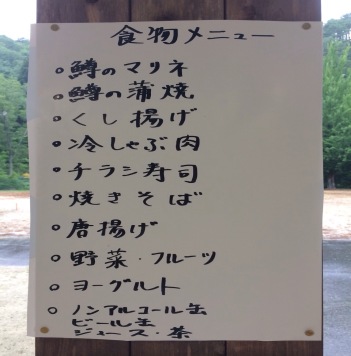 食物メニュー
○鱒のマリネ
○鱒の蒲焼
○くし揚げ
○冷しゃぶ肉
○チラシ寿司
○焼きそば
○唐揚げ
○野菜・フルーツ
○ヨーグルト
○ノンアルコール缶
ビール缶
ジュース・茶